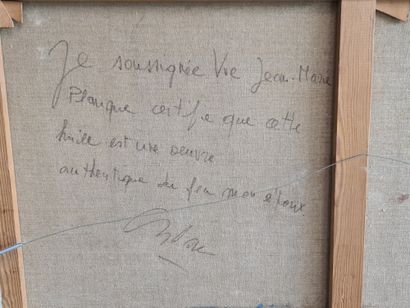 Je soussignée Vve Jean-Marie
Planque certifie que cette
huile est une oeuvre
authentique du feu mon époux